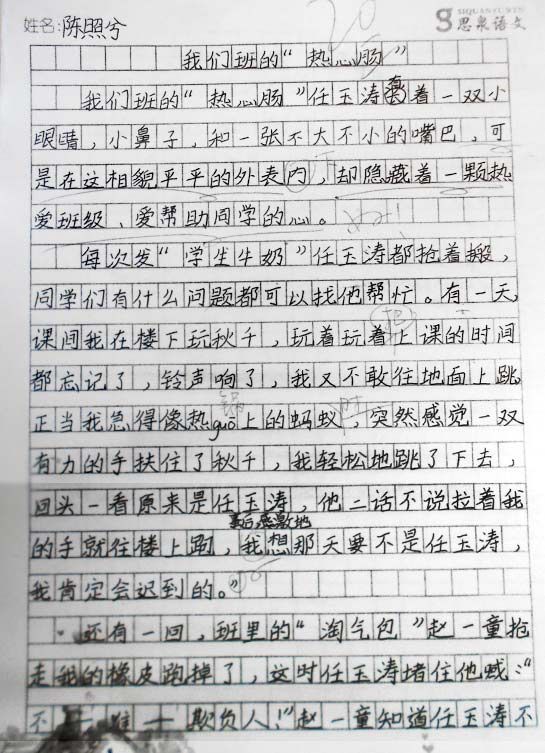 姓名:陈照兮
SIQUANYUWEN
思泉语文
20
我们班的“热心肠”
我们班的“热心肠”任玉涛有着一双小
眼睛，小鼻子，和一张不大不小的嘴巴，可
是在这相貌平平的外表内，却隐藏着一颗热
爱班级、爱帮助同学的心。
每次发“学生牛奶”任玉涛都抢着搬，
同学们有什么问题都可以找他帮忙。有一天，
课间我在楼下玩秋千，玩着玩着把上课的时间
都忘记了，铃声响了，我又不敢往地面上跳，
正当我急得像热guō锅上的蚂蚁时，突然感觉一双
有力的手扶住了秋千，我轻松地跳了下去，
回头一看原来是任玉涛，他二话不说拉着我
的手就往楼上跑，事后,感激地我想那天要不是任玉涛，
我肯定会迟到的。”
还有一回，班里的“淘气包”赵一童抢
走我的橡皮跑掉了，这时任玉涛堵住他喊：“
不——准——欺负人！”赵一童知道任玉涛不